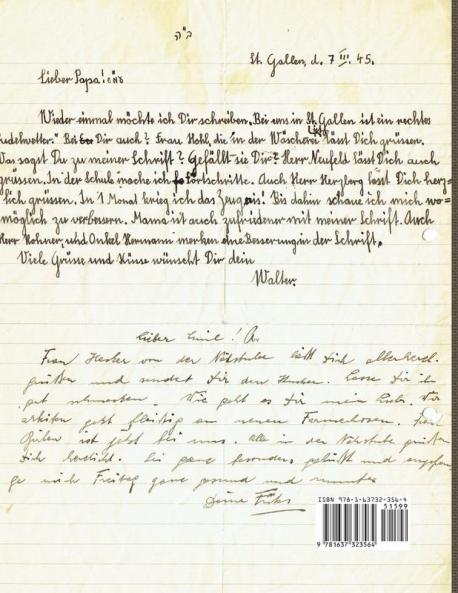 ב"ה
St. Gallen, d. 7 III. 45.
Lieber Papa!
Wieder einmal möchte ich Dir schreiben. Bei uns in St. Gallen ist ein rechtes
udelwetter." Bei Dir auch? Frau Hohl, die in der Wäscherei lässt Dich grüssen.
Was sagst Du zu meiner Schrift? Gefällt sie Dir? Herr Neufeld lässt Dich auch
grüssen. In der Schule mache ich Fortschritte. Auch Herr Herzberg lässt Dich herz-
lich grüssen. In 1 Monat krieg ich das Zeugnis! Bis dahin schaue ich mich wo-
möglich zu verbessern. Mama ist auch zufriedener mit meiner Schrift. Auch
Herr Rohner, und Onkel Hermann merken eine Besserung in der Schrift.
Viele Grüsse und Küsse wünscht Dir dein
Walter.
Lieber Emil!
Frau von der Nähstube läßt Dich
grüßen und sendet Dir den Lasse Dir ihn
gut schmecken. Wie geht es Dir mein Wir
arbeiten jetzt fleißig an neuen
ist jetzt bei uns. Alle in der Nähstube
Dich herzlich. Sei ganz besonders geküßt und
mich Freitag ganz gesund und
Deine
ISBN 978-1-63732-356-4
51599
9 781637 323564